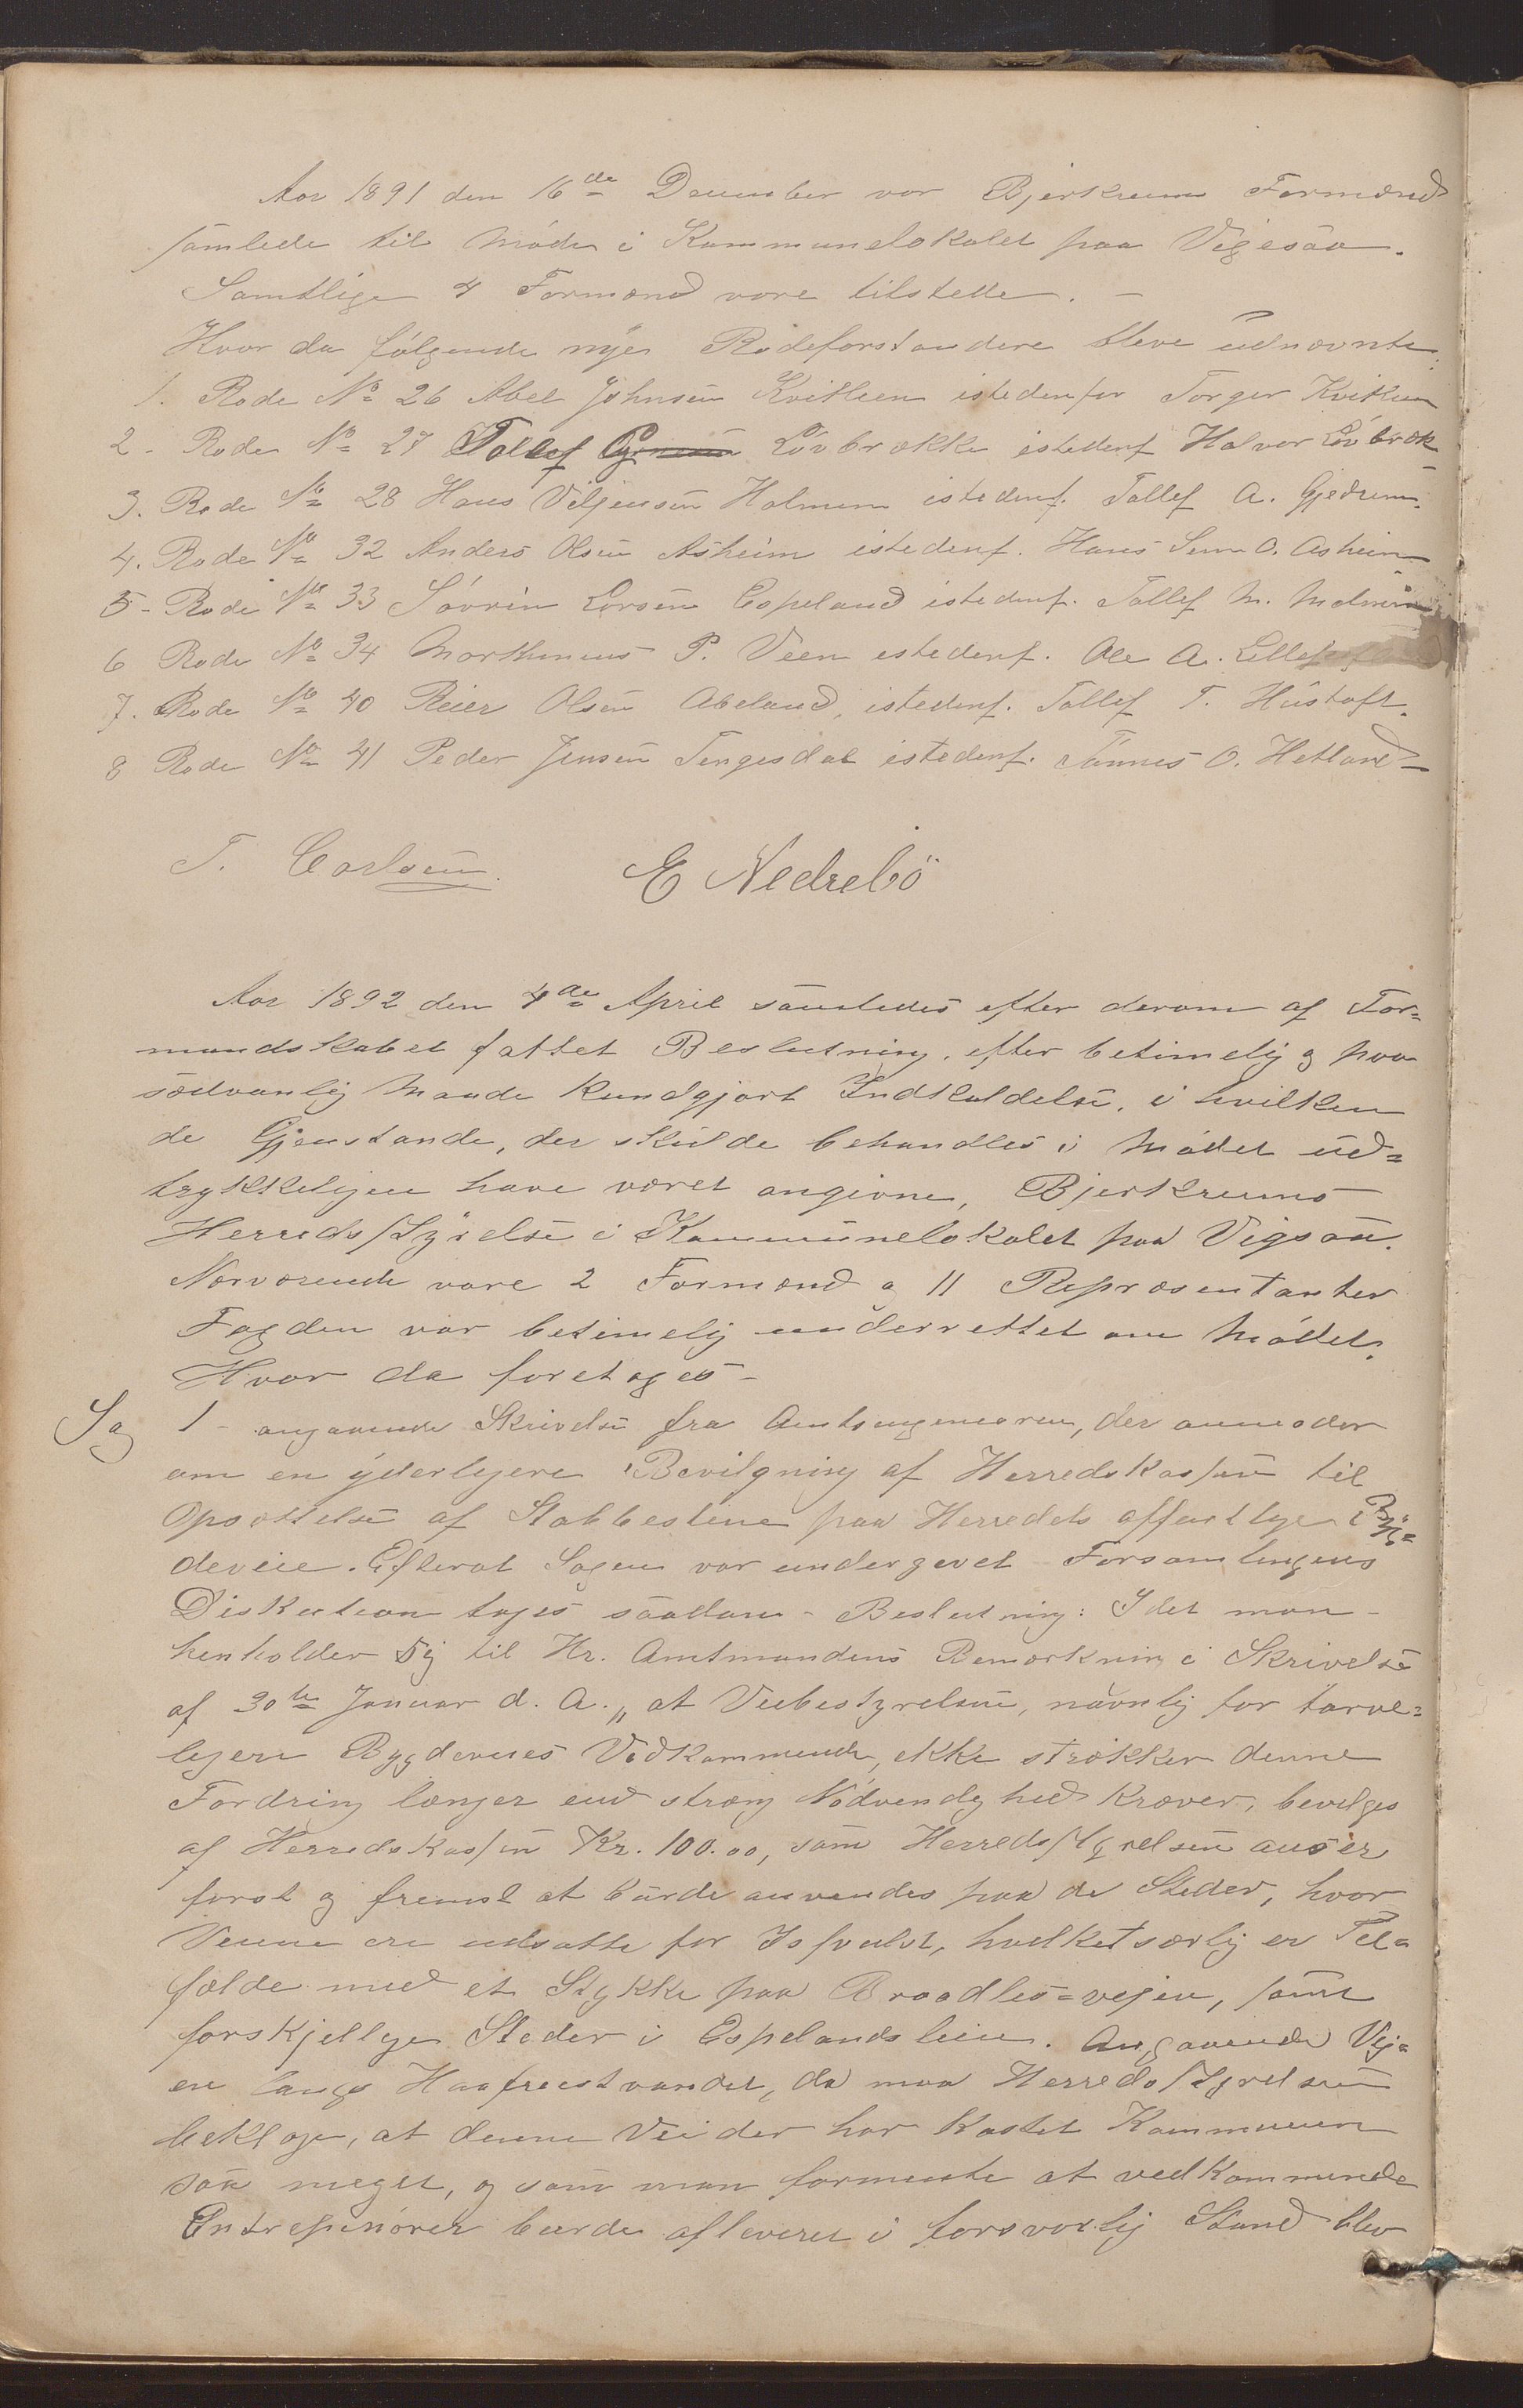 Aar 1891 den 16de December var Bjerkreims Formænd
samlede til Møde i Kommunelokalet paa Vigesaa.
Samtlige 4 Formænd vare tilstede. -
Hvor da følgende nye Rodeforstandere bleve udnævnte:
1. Rode No 26 Abel Johnsen Kvitleen istedenfor Torger Kvitleen
2 - Rode No 27 Tollef Løvbrække istedenf Halvor Løvbræk
3. Rode No 28 Hans Veljensen Holmen istedenf. Tollef A. Gjedrem.
4. Rode No 32 Anders Olsen Asheim istedenf. Hans Sem O. Asheim
5 - Rode No 33 Søvrin Larsen Espeland istedenf. Tollef M.
6 Rode No 34 Morthenius P. Veen istedenf. Ole A.
7. Rode No 40 Reier Olsen Abeland, istedenf. Tollef T. Hustoft.
8 Rode No 41 Peder Jensen Tengesdal istedenf. Tønnes O. Hetland -
T. Carlsen. E Nedrebö
Aar 1892 den 4de April samledes efter derom af For=
mandskabet fattet Beslutning, efter betimelig og paa
sædvanlig Maade kundgjort Indkaldelse, i hvilken
de Gjenstande, der skulde behandles i Mødet ud=
trykkeligen have været angivne, Bjerkreims
Herredsstyrelse i Kommunelokalet paa Vigsaa.
Nærværende vare 2 Formænd og 11 Repræsentanter
Fogden var betimelig underrettet om Mødet.
Hvor da foretoges -
Sag 1 - angaaende Skrivelse fra Amtsingeniøren, der anmoder
om en yderligere Bevilgning af Herredskassen til
Opsættelse af Stabbestene paa Herredets offentlige Byg=
deveie. Efterat Sagen var undergivet Forsamlingens
Diskution toges saadan - Beslutning: Idet man -
henholder sig til Hr. Amtmandens Bemærkning i Skrivelse
af 30te Januar d. A. „ at Veibestyrelsen, navnlig for tarve=
ligere Bygdeveies Vedkommende, ikke strækker denne
Fordring længer end streng Nødvendighed kræver, bevilges
af Herredskassen Kr. 100.00, som Herredsstyrelsen anser
først og fremst at burde anvendes paa de Steder, hvor
Veiene ere udsatte for Isfuldt, hvilket særlig er Til=
fælde med et Stykke paa Braadles=vejen, samt
forskjellige Steder i Espelandsleien. Angaaende Vej=
en langs Haafreistvandet, da maa Herredsstyrelsen
beklage, at denne Vei der har kostet Kommunen
saa meget, og som man formente at vedkommende
Entrepenører burde afleveret i forsvarlig Stand blev